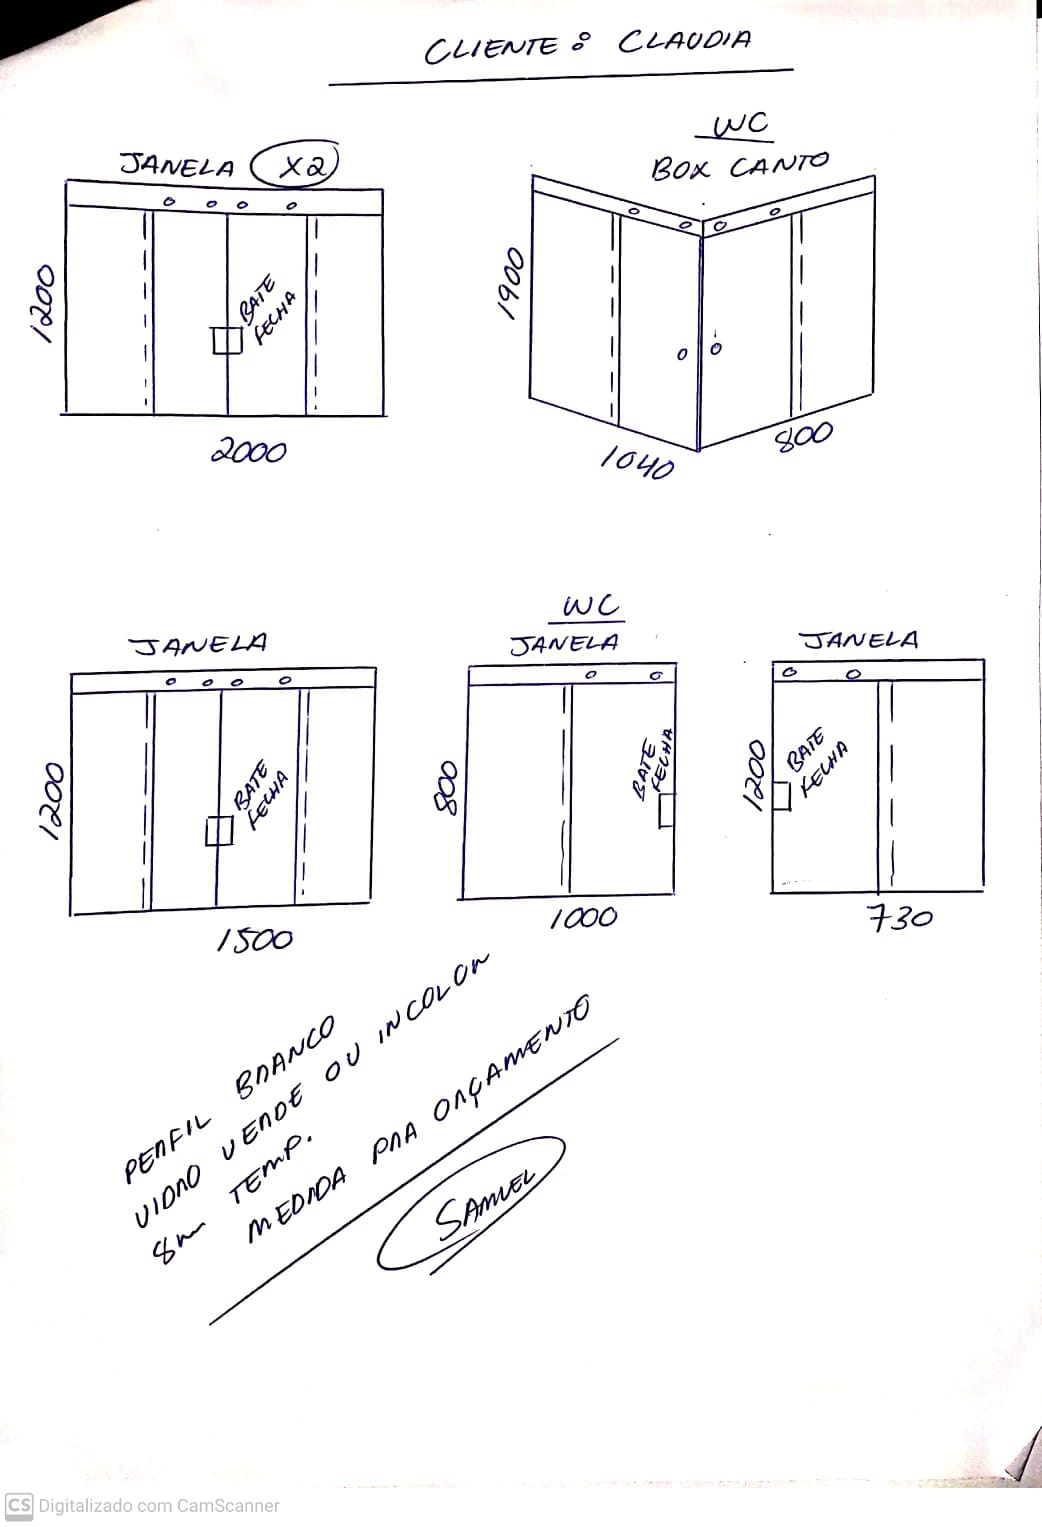 CLIENTE : CLAUDIA
JANELA X2
1200
BATE
FECHA
2000
WC
BOX CANTO
1900
1040
800
JANELA
1200
BATE
FECHA
1500
WC
JANELA
800
BATE
FECHA
1000
JANELA
1200
BATE
FECHA
730
PERFIL BRANCO
VIDRO VERDE OU INCOLOR
8m TEMP.
MEDIDA PRA ORÇAMENTO
SAMUEL
CS Digitalizado com CamScanner